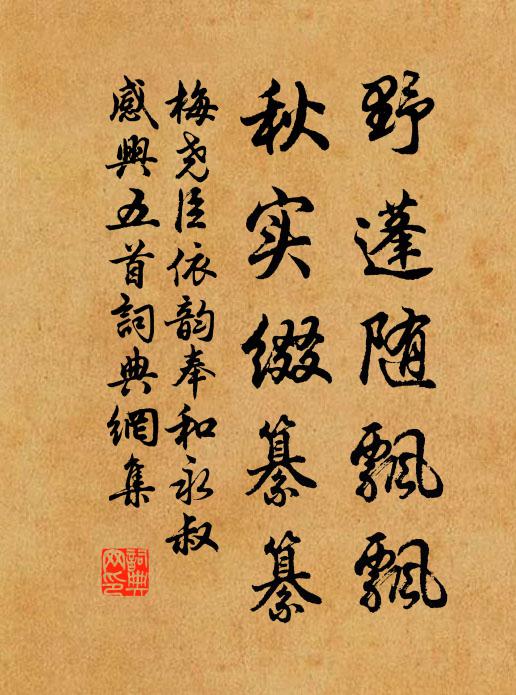 野蓬随飘飘
秋实缀纂纂
梅尧臣依韵奉和永叔
感興五首詞典網集
詞典
网印